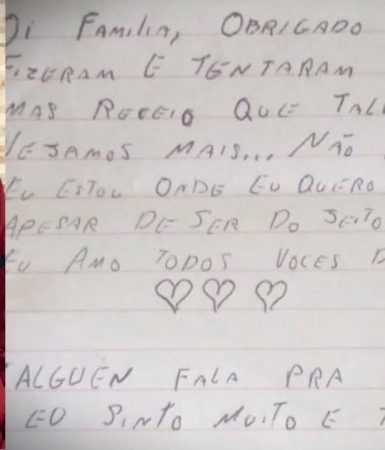 Oi FAMILIA, OBRIGADO
FIZERAM E TENTARAM
MAS RECEIO QUE TAL
VEJAMOS MAIS... NÃO
EU ESTOU ONDE EU QUERO
APESAR DE SER DO JEITO
EU AMO TODOS VOCES
ALGUÉN FALA PRA
EU SINTO MUITO E